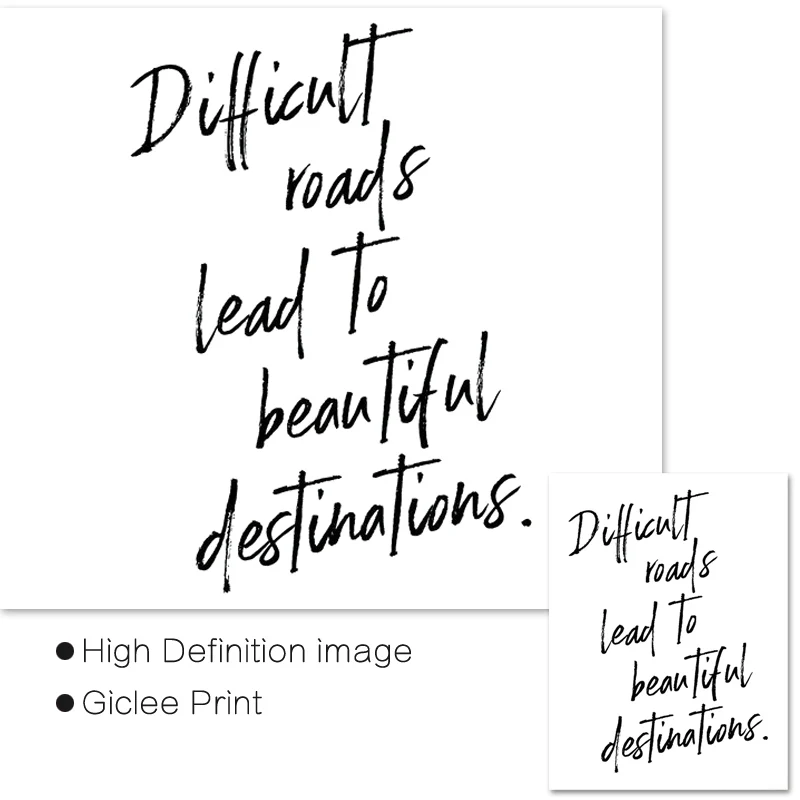 Difficult
roads
lead to
beautiful
destinations.
High Definition image
Giclee Print
Difficult
roads
lead to
beautiful
destinations.